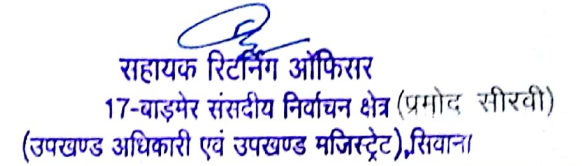 सहायक रिटर्निंग ऑफिसर
17-बाड़मेर संसदीय निर्वाचन क्षेत्र (प्रमोद सीरवी)
(उपखण्ड अधिकारी एवं उपखण्ड मजिस्ट्रेट),सिवाना